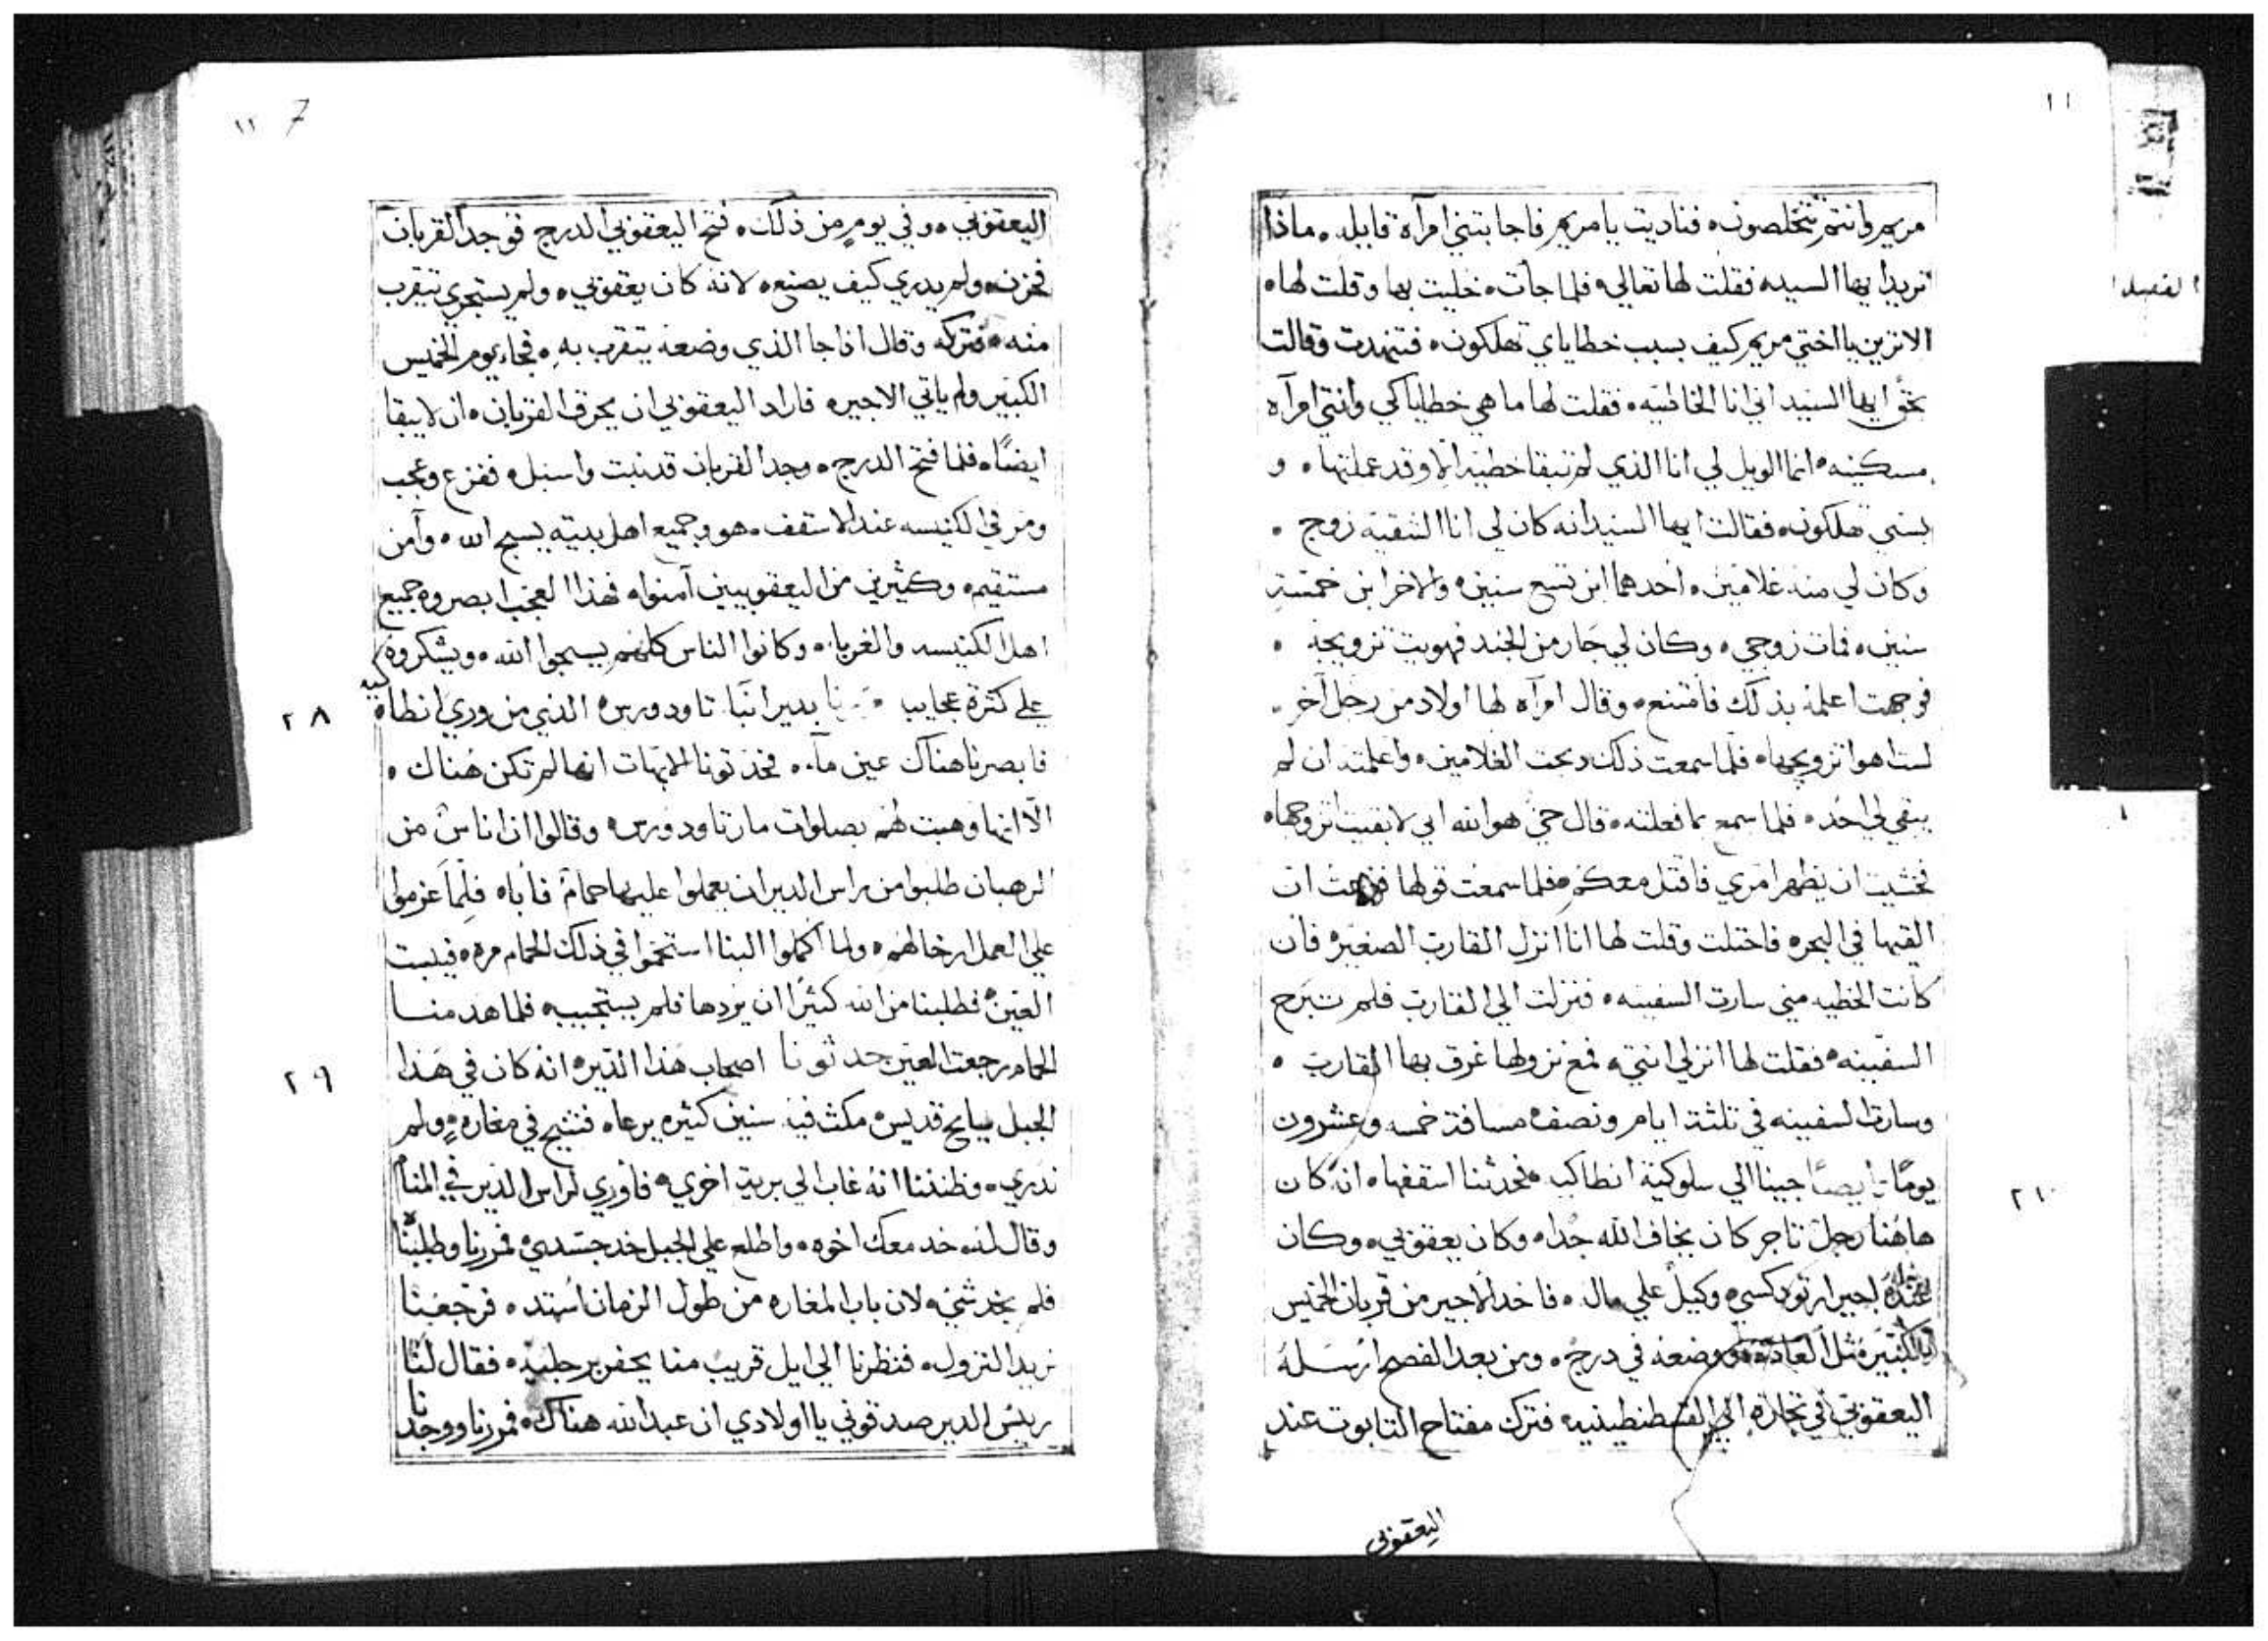 ١١
مريم وانتم تتخلصون ٠ فناديت يا مريم فاجابتني امرآة قايله ٠ ماذا
تريد ايها السيد ٠ فقلت لها تعالي ٠ فلما جآت ٠ خليت بها وقلت لها ٠
الاترين يا اختي مريم كيف بسبب خطاياي تهلكون ٠ فتنهدت وقالت
بحق ايها السيد اني انا الخاطيه ٠ فقلت لها ما هي خطاياكي وانتي امرآه
مسكينه ٠ انما الويل لي انا الذي لم تبقا خطيه الا وقد عملتها ٠ و
بسببي تهلكون ٠ فقالت ايها السيد انه كان لي انا الشقيه زوج ٠
وكان لي منه غلامين ٠ احدهما ابن تسع سنين ٠ والاخر ابن خمسة
سنين ٠ فمات زوجي ٠ وكان لي جار من الجند فهويت تزويجه ٠
فوجهت اعلمه بذلك فامتنع ٠ وقال امرآه لها اولاد من رجل آخر ٠
لست اهوا تزويجها ٠ فلما سمعت ذلك دبحت الغلامين ٠ واعلمته ان لم
يبقي لي احد ٠ فلما سمع بما فعلته ٠ قال حي هو الله اني لا بقيت اتزوجها ٠
فخشيت ان يظهر امري فاقتل معكم ٠ فلما سمعت قولها ان
القيها في البحر ٠ فاحتلت وقلت لها انا انزل القارب الصغير ٠ فان
كانت الخطيه مني سارت السفينه ٠ فنزلت الي القارب فلم تبرح
السفينه ٠ فقلت لها انزلي انتي ٠ فمع نزولها غرق بها القارب ٠
وسارت السفينه في تلثة ايام ونصف مسافة خمسه وعشرون
يومًا ايضًا جينا الي سلوكية انطاكيه ٠ فحدثنا اسقفها ٠ انه كان
هاهنا رجل تاجر كان يخاف الله جدا ٠ وكان يعقوبي ٠ وكان
عنده اجير ارتودكسي ٠ وكيل علي ماله ٠ فاخد الاجير من قربان الخميس
الكبير مثل العاده ووضعه في درج ٠ ومن بعد الفصح ارسله
اليعقوبي في تجارة الي القسطنطينيه فترك مفتاح التابوت عند
اليعقوبي
١١ 7
اليعقوبي ٠ وفي يوم من ذلك ٠ فتح اليعقوبي الدرج فوجد القربان
فحزن ٠ ولم يدري كيف يصنع ٠ لانه كان يعقوبي ٠ ولم يستجري يتقرب
منه ٠ فتركه وقال اذا جا الذي وضعه يتقرب به ٠ فجاء يوم الخميس
الكبير ولم ياتي الاجير ٠ فاراد اليعقوبي ان يحرق القربان ٠ ان لا يبقا
ايضًا ٠ فلما فتح الدرج ٠ وجد القربان قد نبت واسبل ٠ ففزع وعجب
ومر في الكنيسه عند الاسقف ٠ هو وجميع اهل بيته يسبح الله ٠ وآمن
مستقيم ٠ وكثيرين من اليعقوبيين آمنوا ٠ فهذا العجب ابصروه جميع
اهل الكنيسه والغربا ٠ وكانوا الناس كلهم يسبحوا الله ٠ ويشكروه
علي كثرة عجايبه ٠ بدير انبا تاودورس الذي من وري انطاكيه
فابصرنا هناك عين مآء ٠ فحدثونا الابهات انها لم تكن هناك ٠
الّا انها وهبت لهم بصلوات مار تاودورس ٠ وقالوا ان اناس من
الرهبان طلبوا من راس الدير ان يعملوا عليها حمام فاباه ٠ فلما عزموا
علي العمل ارخالهم ٠ ولما اكملوا البنا استحموا في ذلك الحمام مره ٠ فيبست
العين ٠ فطلبنا من الله كثيرًا ان يردها فلم يستجيب ٠ فلما هدمنا
الحمام رجعت العين حدثونا اصحاب هذا الدير ٠ انه كان في هذا
الجبل سايح قديس ٠ مكث فيه سنين كثيره يرعا ٠ فتنيح في مغاره ٠ ولم
ندري ٠ وظننا انه غاب الي برية اخري ٠ فاوري لراس الدير في المنام
وقال له ٠ خد معك اخوه ٠ واطلع علي الجبل خد جسدي ٠ فمررنا وطلبنا
فلم نجد شي ٠ لان باب المغاره من طول الزمان استد ٠ فرجعنا
نريد النزول ٠ فنظرنا الي ايل قريب منا يحفر برجليه ٠ فقال لنا
ريس الدير صدقوني يا اولادي ان عبد الله هناك ٠ فمررنا ووجدنا
٢٨
٢٩